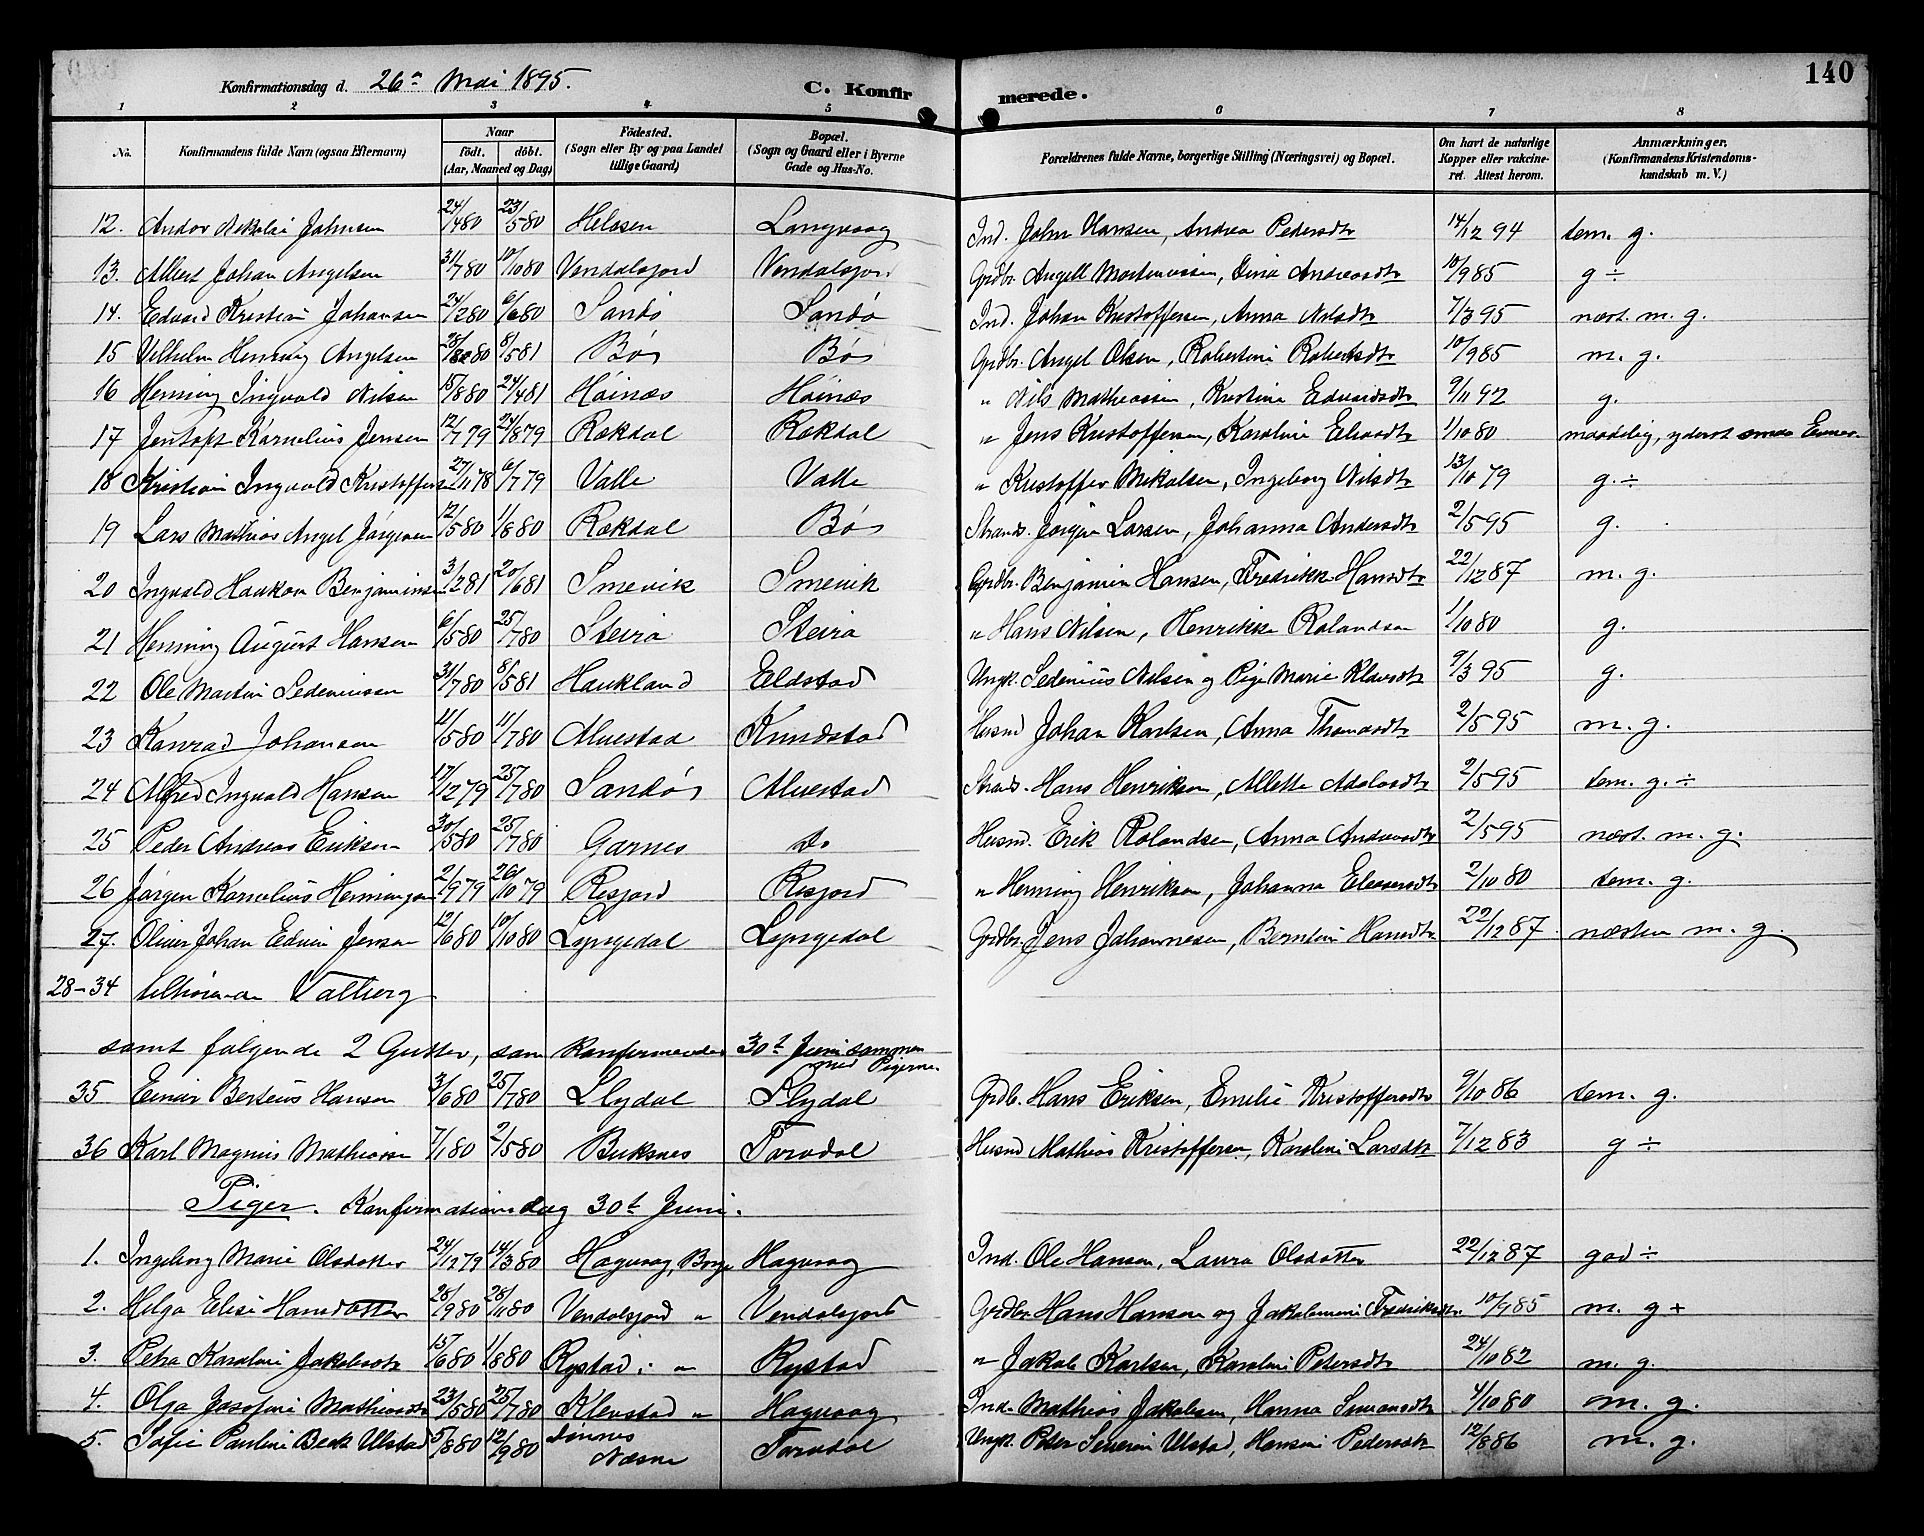 140
Konfirmationsdag d. 26de Mai 1895. C. Konfirmerede.
1 2 3 4 5 6 7 8
No. Konfirmandens fulde Navn (ogsaa Efternavn) Naar født. døbt. (Aar, Maaned og Dag) Födested. (Sogn eller By og paa Landet tillige Gaard) Bopæl. (Sogn og Gaard eller i Byerne Gade og Hus-No. Forældrenes fulde Navne, borgerlige Stilling (Næringsvei) og Bopæl. Om havt de naturlige Kopper eller vakcineret. Attest herom. Anmærkninger. (Konfirmandens Kristendomskundskab m. V.)
12. Andor Nikolai Johnsen 24/4 80 23/5 80 Helosen Langvaag Ind. John Hansen, Andrea Pedersdtr 14/12 94 tem. g.
13. Albert Johan Angelsen 31/7 80 10/10 80 Vendalsjord Vendalsjord Grdbr. Angell Mortenssen, Dina Andreasdtr 10/9 85 g ÷
14. Edvard Kristian Johansen 24/2 80 6/6 80 Sandø Sandø Ind. Johan Kristoffersen, Anna Nilsdtr 7/3 95 næst. m. g.
15 Vilhelm Henning Angelsen 28/12 80 8/5 81 Bø Bø Grdbr. Angel Olsen, Robertine Robertsdtr 10/9 85 m. g.
16 Henning Ingvald Nilsen 15/8 80 24/4 81 Høinæs Høinæs " Nils Mathiassen, Kristine Edvardsdtr 9/11 92 g.
17 Jentoft Kornelius Jensen 12/7 79 24/8 79 Rækdal Rækdal " Jens Kristoffersen, Karoline Eliasdtr 1/10 80 maadelig, yderst smaa Evner.
18 Kristian Ingvald Kristoffersen 27/11 78 6/7 79 Valle Valle " Kristoffer Mikalsen, Ingeborg Nilsdtr 13/10 79 g. ÷
19 Lars Mathias Angel Jørgensen 12/5 80 1/8 80 Rækdal Bø Strands. Jørgen Larsen, Johanna Andersdtr 2/5 95 g.
20 Ingvald Haakon Benjaminsen 3/2 81 20/6 81 Smevik Smevik Grdbr. Benjamin Hansen, Fredrikke Hansdtr 22/12 87 m. g.
21 Henning August Hansen 6/5 80 25/7 80 Steira Steira " Hans Nilsen, Henrikke Rolandsen 1/10 80 g.
22 Ole Martin Sedeniussen 31/7 80 8/5 81 Haukland Eldstad Ungk. Sedenius Nilsen og Pige Marie Klausdtr 9/3 95 g.
23 Konrad Johansen 11/5 80 11/7 80 Alvestad Knudstad Husmd Johan Karlsen, Anna Thomasdtr 2/5 95 m. g.
24 Alfred Ingvald Hansen 17/12 79 25/7 80 Sandø Alvestad Strands. Hans Henriksen, Allette Adolvsdtr 2/5 95 tem. g. ÷
25 Peder Andreas Eriksen 30/5 80 25/7 80 Garnes do Husmd. Erik Rolandsen, Anna Andreasdtr 2/5 95 næst. m. g.
26 Jørgen Kornelius Henningsen 2/9 79 26/10 79 Resjord Resjord " Henning Henriksen, Johanna Eleasersdtr 2/10 80 tem. g.
27. Oliver Johan Edvin Jensen 12/6 80 10/10 80 Lyngedal Lyngedal Grdbr. Jens Johannesen, Berntine Hansdtr 22/12 87 næsten m. g.
28-34 tilhørende Valberg
samt følgende 2 Gutter, som konfirmerdes 30te Juni sammen med Pigerne.
35 Einar Berteus Hansen 3/6 80 25/7 80 Slydal Slydal Grdb. Hans Eriksen, Emilie Kristoffersdtr 9/10 86 tem. g.
36 Karl Magnus Mathiassen 7/1 80 2/5 80 Buksnes Torvdal Husmd Mathias Kristoffersen, Karoline Larsdtr 7/12 83 g ÷
Piger. Konfirmationsdag 30te Juni.
1. Ingeborg Marie Olsdatter 24/12 79 14/3 80 Hagvaag, Borge Hagvaag Ind. Ole Hansen, Laura Olsdatter 22/12 87 god ÷
2. Helga Elise Hansdatter 28/9 80 28/11 80 Vendalsjord " Vendalsjord Grdbr Hans Hansen og Jakobmine Fredriksdtr. 10/9 85 m. g +
3. Petra Karoline Jakobsdtr 15/6 80 1/8 80 Rystad " Rystad " Jakob Karlsen, Karoline Petersdtr 24/10 82 m. g.
4. Olga Josefine Mathiasdtr 23/5 80 25/7 80 Klevstad " Hagvaag Ind. Mathias Jakobsen, Hanna Simonsdtr 4/10 80 m. g.
5. Sofie Pauline Beck Ulstad 5/8 80 12/9 80 Dønnes Næsne Torvdal Ungk. Peter Severin Ulstad, Hansine Pedersdtr 12/8 86 m. g.